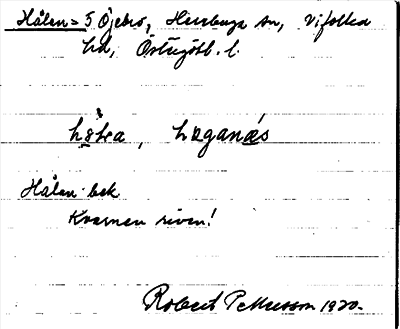 Hålen = 5 Öjebro, Herrberga sn, Vifolka
hd, Östergötl. l.
Hålen bek
Kvarnen riven!
Robert Pettersson 1920.